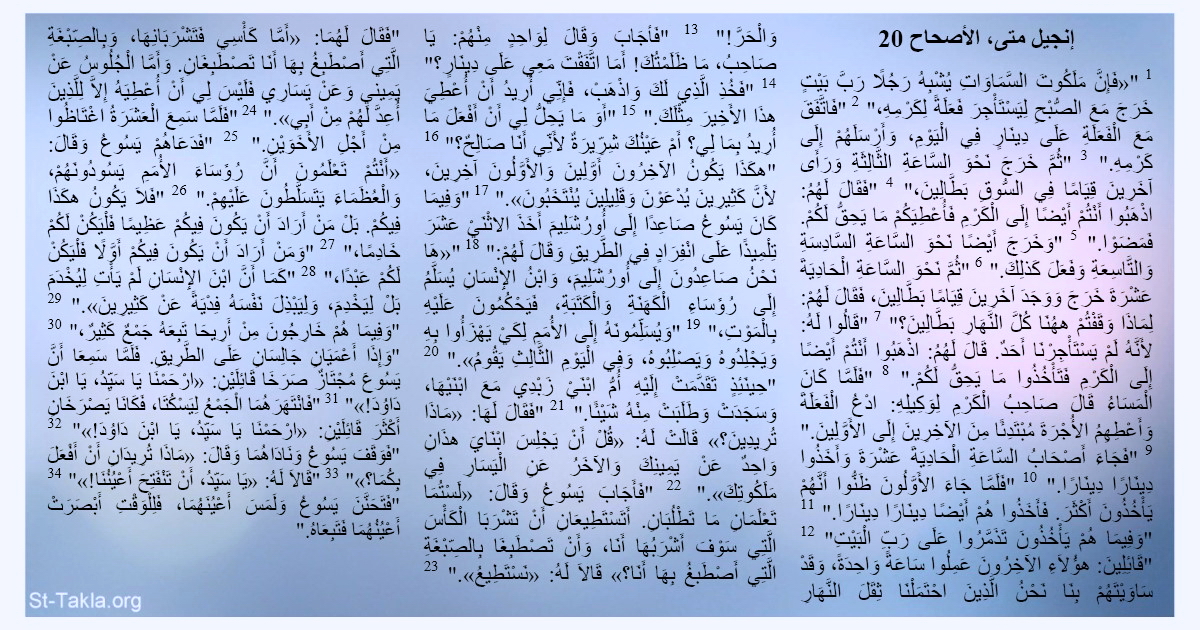 إنجيل متى، الأصحاح 20
1 "«فَإِنَّ مَلَكُوتَ السَّمَاوَاتِ يُشْبِهُ رَجُلًا رَبَّ بَيْتٍ
خَرَجَ مَعَ الصُّبْحِ لِيَسْتَأْجِرَ فَعَلَةً لِكَرْمِهِ،" 2 "فَاتَّفَقَ
مَعَ الْفَعَلَةِ عَلَى دِينَارٍ فِي الْيَوْمِ، وَأَرْسَلَهُمْ إِلَى
كَرْمِهِ." 3 "ثُمَّ خَرَجَ نَحْوَ السَّاعَةِ الثَّالِثَةِ وَرَأَى
آخَرِينَ قِيَامًا فِي السُّوقِ بَطَّالِينَ،" 4 "فَقَالَ لَهُمُ:
اذْهَبُوا أَنْتُمْ أَيْضًا إِلَى الْكَرْمِ فَأُعْطِيَكُمْ مَا يَحِقُّ لَكُمْ.
فَمَضَوْا." 5 "وَخَرَجَ أَيْضًا نَحْوَ السَّاعَةِ السَّادِسَةِ
وَالتَّاسِعَةِ وَفَعَلَ كَذلِكَ." 6 "ثُمَّ نَحْوَ السَّاعَةِ الْحَادِيَةَ
عَشْرَةَ خَرَجَ وَوَجَدَ آخَرِينَ قِيَامًا بَطَّالِينَ، فَقَالَ لَهُمْ:
لِمَاذَا وَقَفْتُمْ ههُنَا كُلَّ النَّهَارِ بَطَّالِينَ؟" 7 "قَالُوا لَهُ:
لأَنَّهُ لَمْ يَسْتَأْجِرْنَا أَحَدٌ. قَالَ لَهُمُ: اذْهَبُوا أَنْتُمْ أَيْضًا
إِلَى الْكَرْمِ فَتَأْخُذُوا مَا يَحِقُّ لَكُمْ." 8 "فَلَمَّا كَانَ
الْمَسَاءُ قَالَ صَاحِبُ الْكَرْمِ لِوَكِيلِهِ: ادْعُ الْفَعَلَةَ
وَأَعْطِهِمُ الأُجْرَةَ مُبْتَدِئًا مِنَ الآخِرِينَ إِلَى الأَوَّلِينَ."
9 "فَجَاءَ أَصْحَابُ السَّاعَةِ الْحَادِيَةَ عَشْرَةَ وَأَخَذُوا
دِينَارًا دِينَارًا." 10 "فَلَمَّا جَاءَ الأَوَّلُونَ ظَنُّوا أَنَّهُمْ
يَأْخُذُونَ أَكْثَرَ. فَأَخَذُوا هُمْ أَيْضًا دِينَارًا دِينَارًا." 11
"وَفِيمَا هُمْ يَأْخُذُونَ تَذَمَّرُوا عَلَى رَبِّ الْبَيْتِ" 12
"قَائِلِينَ: هؤُلاَءِ الآخِرُونَ عَمِلُوا سَاعَةً وَاحِدَةً، وَقَدْ
سَاوَيْتَهُمْ بِنَا نَحْنُ الَّذِينَ احْتَمَلْنَا ثِقَلَ النَّهَارِ
وَالْحَرَّ!" 13 "فَأجَابَ وَقَالَ لِوَاحِدٍ مِنْهُمْ: يَا
صَاحِبُ، مَا ظَلَمْتُكَ! أَمَا اتَّفَقْتَ مَعِي عَلَى دِينَارٍ؟"
14 "فَخُذِ الَّذِي لَكَ وَاذْهَبْ، فَإِنِّي أُرِيدُ أَنْ أُعْطِيَ
هذَا الأَخِيرَ مِثْلَكَ." 15 "أَوَ مَا يَحِلُّ لِي أَنْ أَفْعَلَ مَا
أُرِيدُ بِمَا لِي؟ أَمْ عَيْنُكَ شِرِّيرَةٌ لأَنِّي أَنَا صَالِحٌ؟" 16
"هكَذَا يَكُونُ الآخِرُونَ أَوَّلِينَ وَالأَوَّلُونَ آخِرِينَ،
لأَنَّ كَثِيرِينَ يُدْعَوْنَ وَقَلِيلِينَ يُنْتَخَبُونَ»." 17 "وَفِيمَا
كَانَ يَسُوعُ صَاعِدًا إِلَى أُورُشَلِيمَ أَخَذَ الاثْنَيْ عَشَرَ
تِلْمِيذًا عَلَى انْفِرَادٍ فِي الطَّرِيقِ وَقَالَ لَهُمْ:" 18 "«هَا
نَحْنُ صَاعِدُونَ إِلَى أُورُشَلِيمَ، وَابْنُ الإِنْسَانِ يُسَلَّمُ
إِلَى رُؤَسَاءِ الْكَهَنَةِ وَالْكَتَبَةِ، فَيَحْكُمُونَ عَلَيْهِ
بِالْمَوْتِ،" 19 "وَيُسَلِّمُونَهُ إِلَى الأُمَمِ لِكَيْ يَهْزَأُوا بِهِ
وَيَجْلِدُوهُ وَيَصْلِبُوهُ، وَفِي الْيَوْمِ الثَّالِثِ يَقُومُ»." 20
"حِينَئِذٍ تَقَدَّمَتْ إِلَيْهِ أُمُّ ابْنَيْ زَبْدِي مَعَ ابْنَيْهَا،
وَسَجَدَتْ وَطَلَبَتْ مِنْهُ شَيْئًا." 21 "فَقَالَ لَهَا: «مَاذَا
تُرِيدِينَ؟» قَالَتْ لَهُ: «قُلْ أَنْ يَجْلِسَ ابْنَايَ هذَانِ
وَاحِدٌ عَنْ يَمِينِكَ وَالآخَرُ عَنِ الْيَسَارِ فِي
مَلَكُوتِكَ»." 22 "فَأَجَابَ يَسُوعُ وَقَالَ: «لَسْتُمَا
تَعْلَمَانِ مَا تَطْلُبَانِ. أَتَسْتَطِيعَانِ أَنْ تَشْرَبَا الْكَأْسَ
الَّتِي سَوْفَ أَشْرَبُهَا أَنَا، وَأَنْ تَصْطَبِغَا بِالصِّبْغَةِ
الَّتِي أَصْطَبِغُ بِهَا أَنَا؟» قَالاَ لَهُ: «نَسْتَطِيعُ»." 23
"فَقَالَ لَهُمَا: «أَمَّا كَأْسِي فَتَشْرَبَانِهَا، وَبِالصِّبْغَةِ
الَّتِي أَصْطَبِغُ بِهَا أَنَا تَصْطَبِغَانِ. وَأَمَّا الْجُلُوسُ عَنْ
يَمِينِي وَعَنْ يَسَارِي فَلَيْسَ لِي أَنْ أُعْطِيَهُ إِلاَّ لِلَّذِينَ
أُعِدَّ لَهُمْ مِنْ أَبِي»." 24 "فَلَمَّا سَمِعَ الْعَشَرَةُ اغْتَاظُوا
مِنْ أَجْلِ الأَخَوَيْنِ." 25 "فَدَعَاهُمْ يَسُوعُ وَقَالَ:
«أَنْتُمْ تَعْلَمُونَ أَنَّ رُؤَسَاءَ الأُمَمِ يَسُودُونَهُمْ،
وَالْعُظَمَاءَ يَتَسَلَّطُونَ عَلَيْهِمْ." 26 "فَلاَ يَكُونُ هكَذَا
فِيكُمْ. بَلْ مَنْ أَرَادَ أَنْ يَكُونَ فِيكُمْ عَظِيمًا فَلْيَكُنْ لَكُمْ
خَادِمًا،" 27 "وَمَنْ أَرَادَ أَنْ يَكُونَ فِيكُمْ أَوَّلًا فَلْيَكُنْ
لَكُمْ عَبْدًا،" 28 "كَمَا أَنَّ ابْنَ الإِنْسَانِ لَمْ يَأْتِ لِيُخْدَمَ
بَلْ لِيَخْدِمَ، وَلِيَبْذِلَ نَفْسَهُ فِدْيَةً عَنْ كَثِيرِينَ»." 29
"وَفِيمَا هُمْ خَارِجُونَ مِنْ أَرِيحَا تَبِعَهُ جَمْعٌ كَثِيرٌ،" 30
"وَإِذَا أَعْمَيَانِ جَالِسَانِ عَلَى الطَّرِيقِ. فَلَمَّا سَمِعَا أَنَّ
يَسُوعَ مُجْتَازٌ صَرَخَا قَائِلَيْنِ: «ارْحَمْنَا يَا سَيِّدُ، يَا ابْنَ
دَاوُدَ!»" 31 "فَانْتَهَرَهُمَا الْجَمْعُ لِيَسْكُتَا، فَكَانَا يَصْرَخَانِ
أَكْثَرَ قَائِلَيْنِ: «ارْحَمْنَا يَا سَيِّدُ، يَا ابْنَ دَاوُدَ!»" 32
"فَوَقَفَ يَسُوعُ وَنَادَاهُمَا وَقَالَ: «مَاذَا تُرِيدَانِ أَنْ أَفْعَلَ
بِكُمَا؟»" 33 "قَالاَ لَهُ: «يَا سَيِّدُ، أَنْ تَنْفَتِحَ أَعْيُنُنَا!»" 34
"فَتَحَنَّنَ يَسُوعُ وَلَمَسَ أَعْيُنَهُمَا، فَلِلْوَقْتِ أَبْصَرَتْ
أَعْيُنُهُمَا فَتَبِعَاهُ."
St-Takla.org